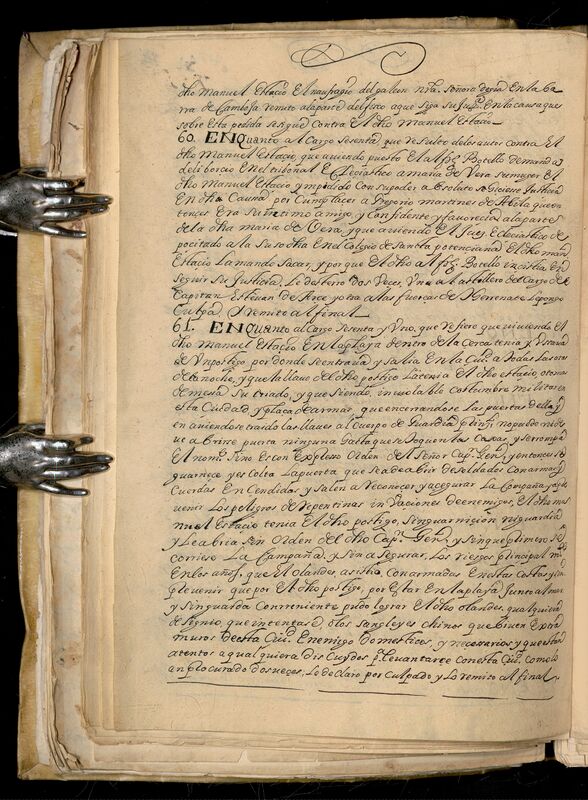 dho Manuel Estacio El naufragio del galeon nra. señora de guia En la ba
rra de Camboxa remito a la parte del fisco a que siga su Jusª. En la causa que
sobre Esta perdida se sigue Contra El dho Manuel Estacio
60. ENQuanto al Cargo Sesenta que resulto de los autos contra El
dho Manuel Estacio que auiendo puesto El Alfz. Botello demanda
de diborcio En el tribunal Eclesiastico a maria de Vera su muger El
dho Manuel Estacio ympidio Con su poder absoluto se siguiese Justicia
En dha Causa por Cumplacer a gregorio martines de Abila que en
tonces Era su yntimo amigo y Confidente y fauorecia a la parte
de la dha maria de Vera, y que auiendo El Juez Eclesiastico de
pocitado a la suso dha En el Colegio de Santta potenciana El dho man
Estacio La mando sacar, y por que El dho Alfz. Botello insistia En
seguir su Justicia, Le desterro dos Veces, Vna a Caballero del Cargo del
Capitan Esteuan de Arce y otra a las fuerzas de Le pongo
Culpa, y remito al final
61. ENQuanto al Cargo Sesenta y Vno, que refiere que viuiendo El
dho Manuel Estacio En la playa dentro de la Cerca tenia y Vsaua
de Vn postigo por donde se entraua y salia En la Ciu. a todas Las oras
de la noche, y que la llaue del dho postigo La tenia El dho estacio o tomas
de mesa Su criado, y que siendo, inuiolable Costumbre militar en
esta Ciudad y plaça de armas que encerrandose las puertas della y
en auiendose traido las llaues al Cuerpo de Guardia prinl. no pudo nin
ue a brirse puerta ninguna hasta que se toquen las Caxas, y se rrompa
El nome. sino Es con Expresso orden del Señor Capn. Genl, y entonces se
guarnece y escolta La puerta que sea de abrir de soldados Con armas y
Cuerdas Encendidas y salen a reconocer y asegurar La Campaña y a pre
uenir Los peligros de repentinas inuaciones de enemigos, El dho ma
nuel Estacio tenia El dho postigo, sin guarnision ni guardia
y Le abria sin orden del dho Capn. Genl. y sin que primero se
corriese La Campaña, y sin asegurar, Los riesgos principal mte
En los años, que El olandes, asistio, Con armadas En estas Costas y sin
preuenir que por El dho postigo, por Estar En la playa Junto al mar
y sin guarda Conveniente pudo lograr El dho olandes, qualquiera
designio, que intentase o los sangleyes chinos que viuen Extra
muros desta Ciu. Enemigos Domesticos, y necesarios y que estan
atentos a qualquiera Discuydos pa. Leuantarse Con esta Ciu. como lo
an procurado dos veces, Le declaro por culpado y Lo remito al final